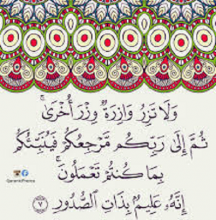 وَلَا تَزِرُ وَازِرَةٌ وِزْرَ أُخْرَىٰ ۚ
ثُمَّ إِلَىٰ رَبِّكُم مَّرْجِعُكُمْ فَيُنَبِّئُكُم
بِمَا كُنتُمْ تَعْمَلُونَ ۚ
إِنَّهُ عَلِيمٌ بِذَاتِ الصُّدُورِ